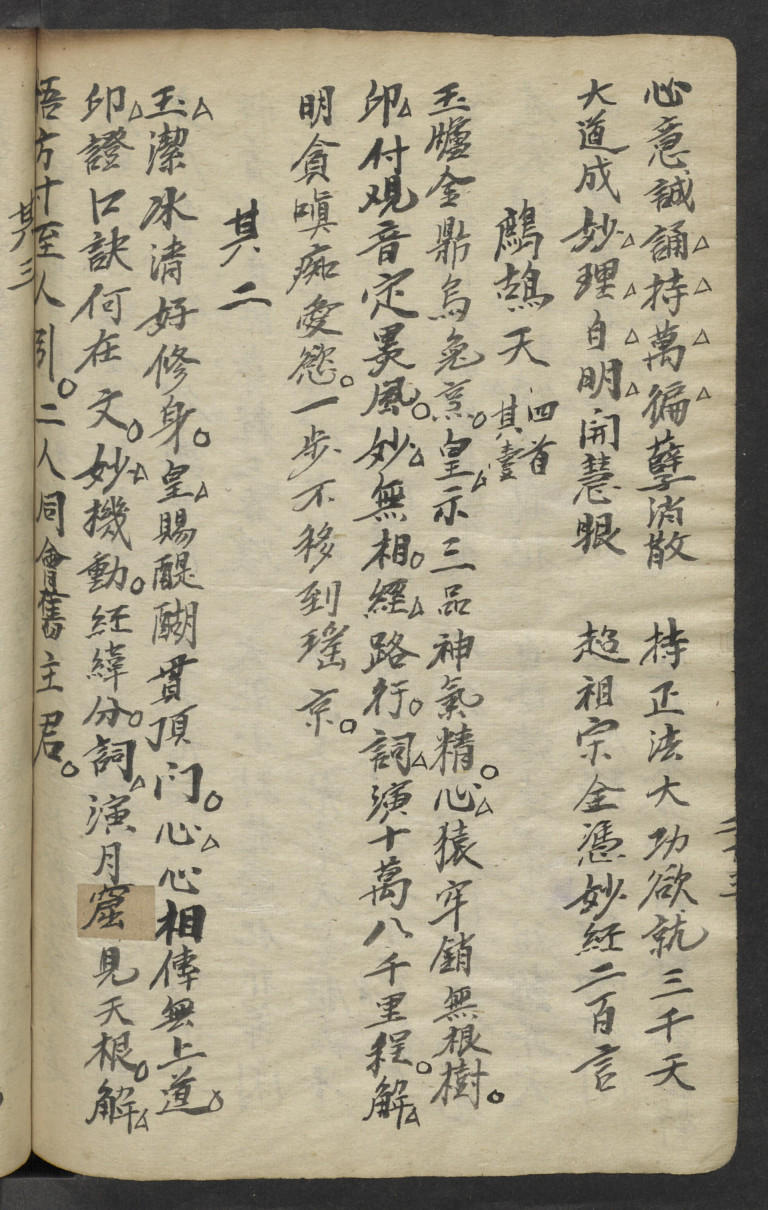 心意誠誦持萬徧孽消散　持正法大功欲就三千天
大道成妙理自明開慧眼　超祖宗全憑妙經二百言
鷓鴣天 四首 其壹
玉爐金鼎烏兔烹。皇示三品神氣精。心猿牢鎖無根樹。
印付观音定巽風。妙無相。經路行。詞演十萬八千里程。解
明貪嗔痴愛慾。一步不移到瑤京。
其二
玉潔冰清好修身。皇賜醍醐貫頂门。心心相傳無上道。
印證口訣何在文。妙機動。經緯分。詞演月窟見天根。解
悟方寸至人引。二人同會舊主君。
其三
二十三